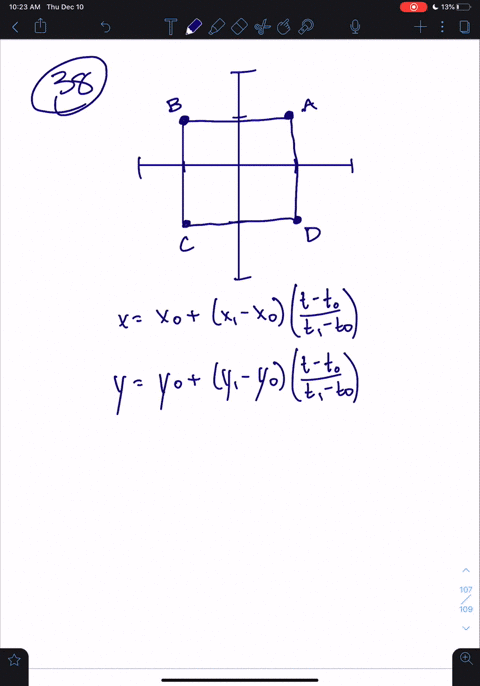 10:23 AM Thu Dec 10
13%
T
38
B
A
C
D
x = x₀ + (x₁ - x₀) (t - t₀ / t₁ - t₀)
y = y₀ + (y₁ - y₀) (t - t₀ / t₁ - t₀)
107
/
109